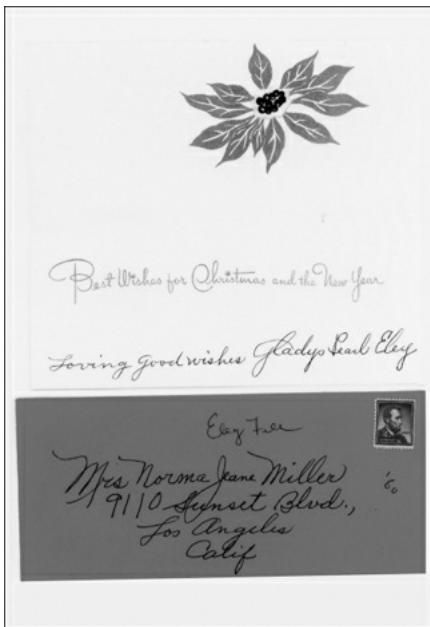 Best Wishes for Christmas and the New Year
Loving Good wishes Gladys Pearl Eley
Eley File
Mrs Norma Jeane Miller
'60
9110 Sunset Blvd.,
Los Angeles
Calif